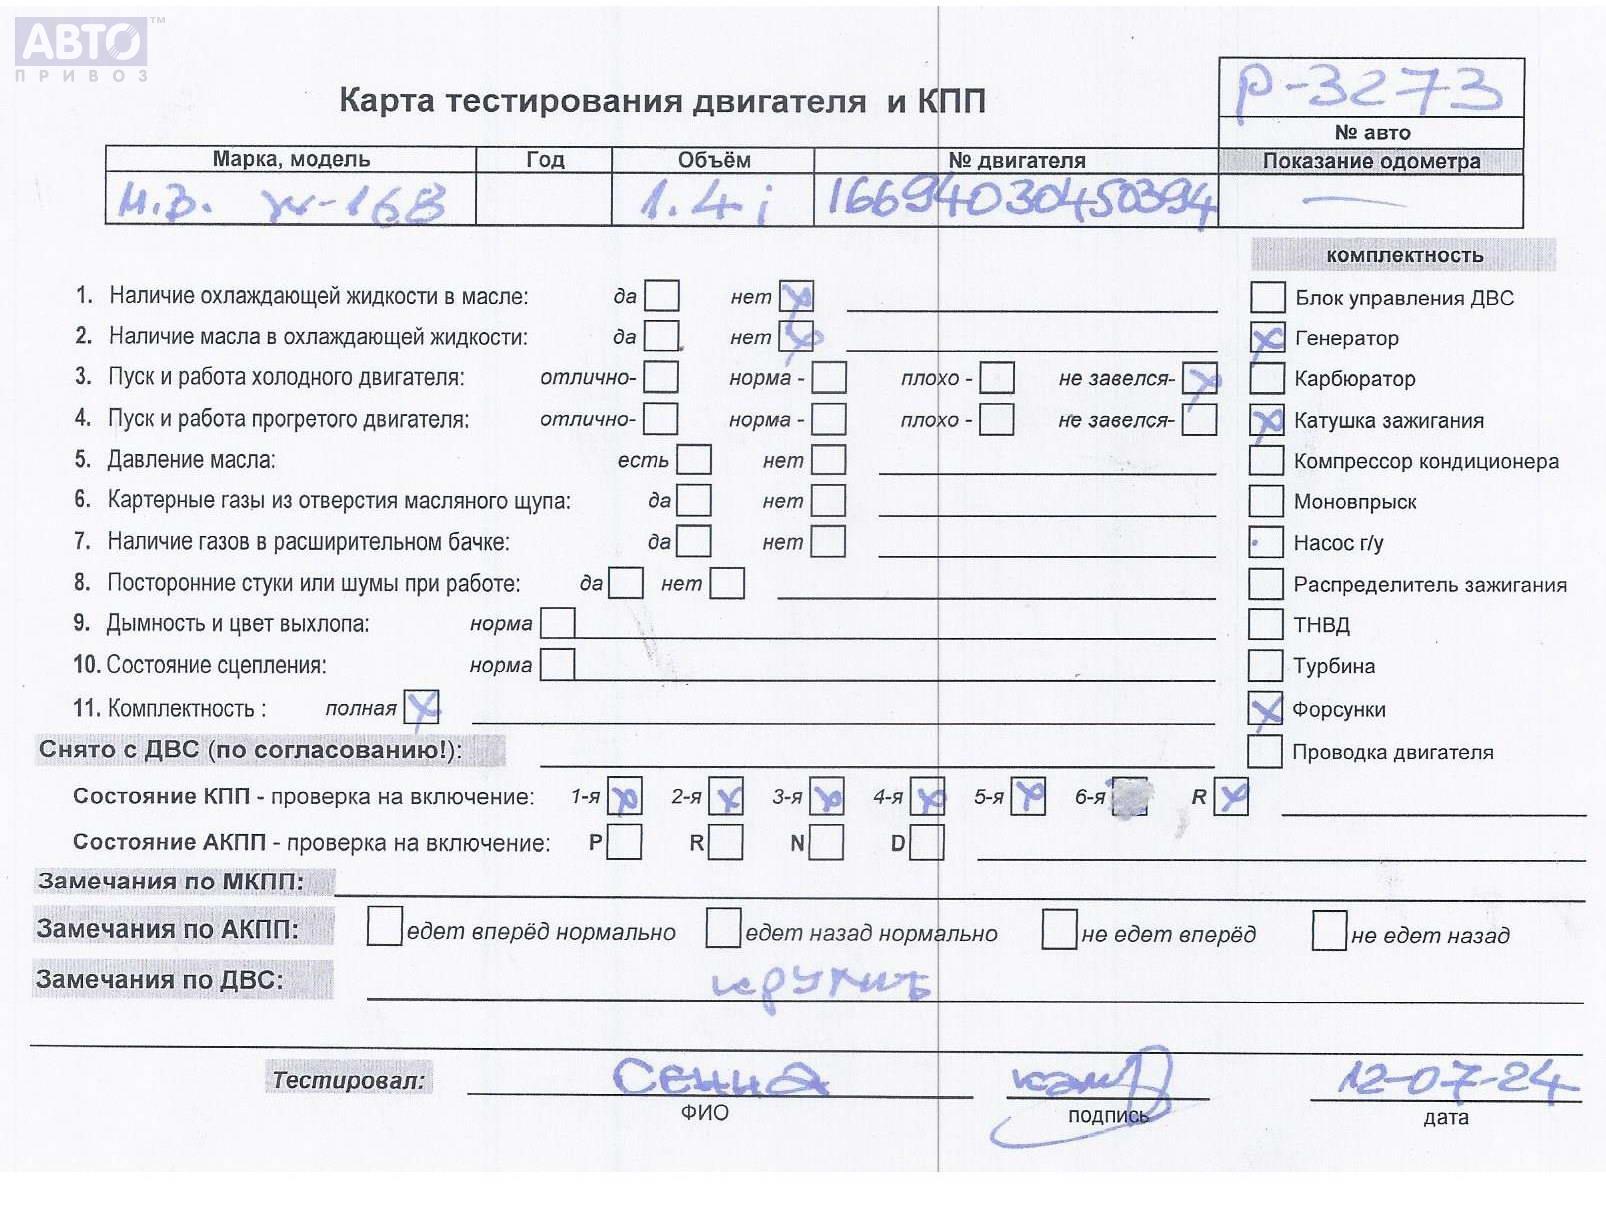 АВТО™
ПРИВОЗ
Карта тестирования двигателя и КПП
Р-3273
№ авто
Марка, модель Год Объём № двигателя Показание одометра
М.В. ж-168 1.4i 16694030450394 —
комплектность
1. Наличие охлаждающей жидкости в масле: да нет x
2. Наличие масла в охлаждающей жидкости: да нет x
3. Пуск и работа холодного двигателя: отлично- норма - плохо - не завелся- x
4. Пуск и работа прогретого двигателя: отлично- норма - плохо - не завелся-
5. Давление масла: есть нет
6. Картерные газы из отверстия масляного щупа: да нет
7. Наличие газов в расширительном бачке: да нет
8. Посторонние стуки или шумы при работе: да нет
9. Дымность и цвет выхлопа: норма
10. Состояние сцепления: норма
11. Комплектность : полная x
Блок управления ДВС
x Генератор
Карбюратор
x Катушка зажигания
Компрессор кондиционера
Моновпрыск
Насос г/у
Распределитель зажигания
ТНВД
Турбина
x Форсунки
Проводка двигателя
Снято с ДВС (по согласованию!):
Состояние КПП - проверка на включение: 1-я x 2-я x 3-я x 4-я x 5-я x 6-я R x
Состояние АКПП - проверка на включение: P R N D
Замечания по МКПП:
Замечания по АКПП: едет вперёд нормально едет назад нормально не едет вперёд не едет назад
Замечания по ДВС: крутить
Тестировал: Сенна 12-07-24
ФИО подпись дата